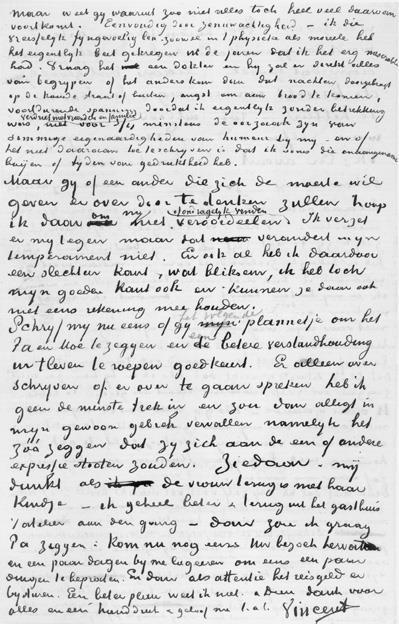 maar weet gij waaruit zoo niet alles toch heel veel daarvan
voortkomt. Eenvoudig door zenuwachtigheid – ik die
vreeselijk fijngevoelig ben zoowel in 't physieke als moreele heb
het eigentlijk pas gekregen in de jaren dat ik het erg miserabel
had. Vraag het een dokter en hij zal er direkt alles
van begrijpen of het anders kan dan dat nachten doorgebragt
op de koude straat of buiten, angst om aan brood te komen,
voortdurende spanning doordat ik eigentlijk zonder betrekking
verdriet met vrienden en familie
was, niet voor 3/4 minstens de oorzaak zijn van
sommige eigenaardigheden van humeur bij mij, en of
het niet daaraan toe te schrijven is dat ik soms die onaangename
buijen of tijden van gedruktheid heb.
Maar gij of een ander die zich de moeite wil
geven er over door te denken zullen hoop
ik daarom mij niet veroordeelen. Ik verzet
of onverdragelijk vinden
er mij tegen maar dat verandert mijn
temperament niet. En ook al heb ik daardoor
een slechten kant, wat bliksem, ik heb toch
mijn goeden kant ook en kunnen ze daar ook
niet eens rekening mee houden.
Schrijf mij nu eens of gij het volgende plannetje om het
Pa eens te zeggen en de betere verstandhouding
in 't leven te roepen goedkeurt. Er alleen over
schrijven of er over te gaan spreken heb ik
geen de minste trek in en zou dan alligt in
mijn gewoon gebrek vervallen namelijk het
zóó zeggen dat zij zich aan de een of andere
expressie stooten zouden. Ziedaar – mij
dunkt als de vrouw terug is met haar
kindje – ik geheel beter & terug uit het gasthuis
't atelier aan den gang – dan zou ik graag
Pa zeggen: kom nu nog eens Uw bezoek hervatten
en een paar dagen bij me logeeren om eens een paar
dingen te bepraten. En dan als attentie het reisgeld er
bijsturen. Een beter plan weet ik niet. & Dan dank voor
alles en een handdruk & geloof me t.à.t. Vincent